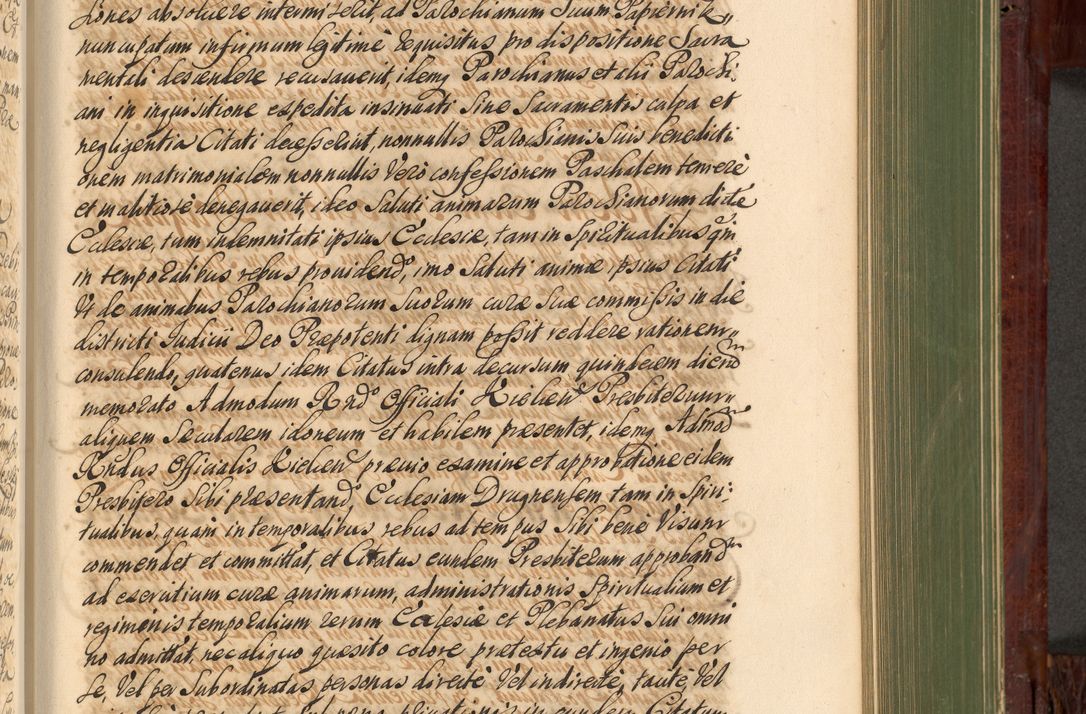 siones absolvere intermiserit, ad Parochianum Suum Papiernik
nuncupatum infirmum legitimè requisitus pro dispositione Sacra
mentali descendere recusaverit, idemq Parochianus et alii Parochi:
ani in inquisitione expedita insinuati Sine Sacramentis culpa et
negligentia Citati decesserint, nonnullis Parochianis Suis benedicti
onem matrimonialem nonnullis Verò confessionem Paschalem temerè
et malitiosè denegaverit, ideo Saluti animarum Parochianorum dictæ
Ecclesiæ, tum indemnitati ipsius Ecclesiæ, tam in Spiritualibus qm
in temporalibus rebus providend, imo Saluti animæ ipsius Citati
Vt de animabus Parochianorum Suorum curæ Suæ commissis in die
districti Iudicii Deo Præpotenti dignam possit reddere rationem
consulendo, quatenus idem Citatus intra decursum quindecem dierum
memorato Admodum Rnd Officiali Kielcen Presbiterum
aliquem Sæcularem idoneum et habilem præsentet, idemq Admod
Rndus Officialis Kielcen prævio examine et approbatione eidem
Presbitero Sibi præsentand Ecclesiam Drugnensem tam in Spiri:
tualibus, quam in temporalibus rebus ad tempus Sibi benè Visum
commendet et committat, et Citatus eundem Presbiterum approband
ad exercitium curæ animarum, administrationis Spiritualium et
regiminis temporalium rerum Ecclesiæ et Plebanatus Sui omni
no admittat, nec aliquo quæsito colore prætextu et ingenio per
Se, Vel per Subordinatas personas directè Vel indirectè, tacitè, Vel
in eundem Citatum